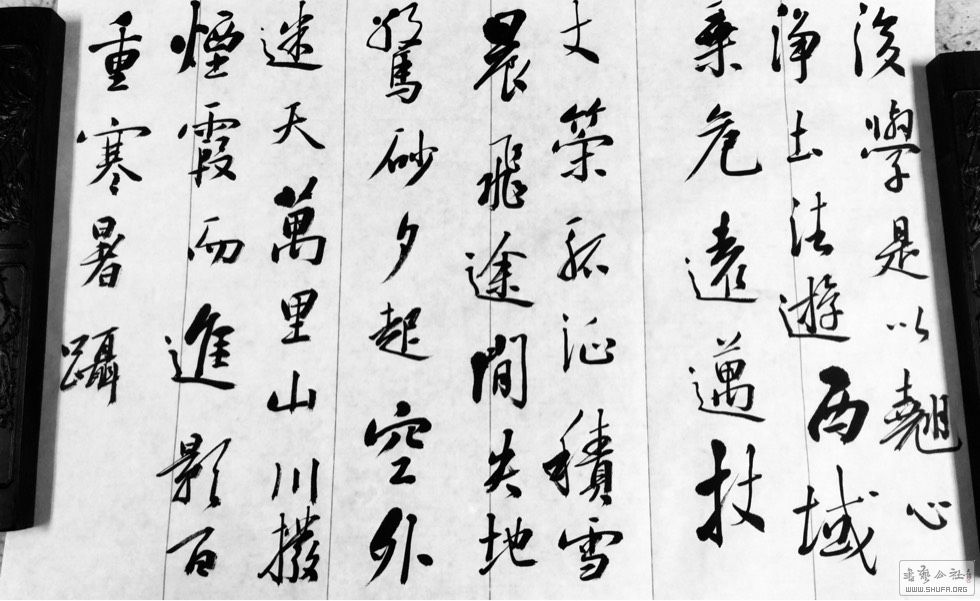 後學是以翹心
淨土法遊西域
乗危遠邁杖
丈策孤征積雪
晨飛途間失地
驚砂夕起空外
迷天萬里山川撥
煙霞而進影百
重寒暑躡
書藝公社
WWW.SHUFA.ORG